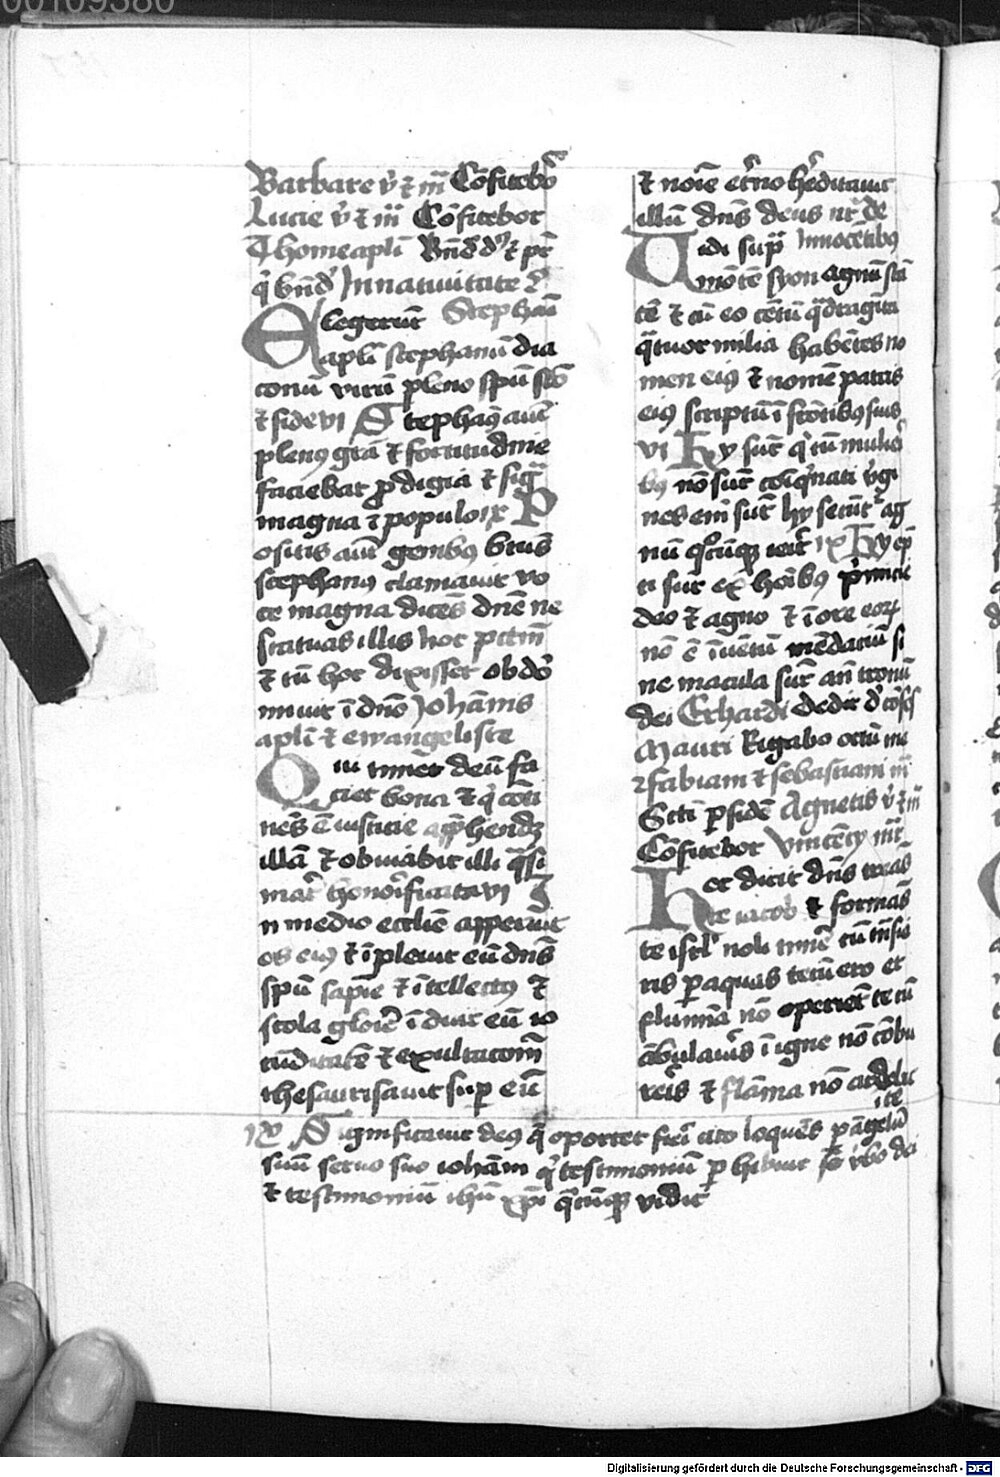 00109380
Barbare v̄ ⁊ m̄ Cōfitebor
Lucie v̄ ⁊ m̄ Cōfitebor
Thome apl̄i Bn̄d d ⁊ pr̄
q̄ bn̄d In natiuitate
Elegerūt Stephāi
apl̄i stephanū dia
conū virū pleno spū scō
⁊ fide vi Stephāꝯ autē
plenꝯ grā ⁊ fortitudīe
faciebat ꝓdigia ⁊ sigᷓ
magna ī populo ix P
ositis autē genibꝯ btūs
stephanꝯ clamauit vo
ce magna dicēs dn̄e ne
statuas illis hoc pctm̄
⁊ cū hoc dixisset obdor
miuit ī dn̄o Johānis
apl̄i ⁊ ewangeliste
Qui timēt deū fa
ciet bona ⁊ q̄ cōti
nēs ē iusticie apphendꝫ
illā ⁊ obuiabit illi qᷓsi
mat̄ honorificata vi I
n medio eccl̄ie apperuit
os eiꝯ ⁊ īpleuit eū dn̄s
spū sapīe ⁊ ītellectꝯ ⁊
stola glor̄ie īduit eū io
cūditatē ⁊ exultacōem̄
thesaurisauit suꝑ eū
⁊ noīe et̄no hēditauit
illū dn̄s deus nr̄ de
Vidi supᷓ Innocētibꝯ
mōtē syon agnū stā
tē ⁊ cū eo cētū qᷓdragīta
qᷓtuor milia habētes no
men eiꝯ ⁊ nomē patris
eiꝯ scriptū ī frōtibꝯ suis
vi Hy sūt q̄ cū mulieri
bꝯ nō sūt coīqⁱnati v̄gi
nes em̄ sūt hy secūt̄ ag
nū qᵒcūqꝫ ierit ix Hy ēp
ti sūt ex hoībꝯ pⁱmicie
deo ⁊ agno ⁊ ī ore eoꝝ
nō ē īuētū mēdaciū si
ne macula sūt an̄ tronū
dei Erhardi dedit d cōfes
Mauri Rigabo ortū meū
Fabiani ⁊ sebastiani m̄
Scti ꝑ fidē Agnetis v̄ ⁊ m̄
Cōfitebor Vincēcy m̄r
Hec dicit dn̄s creās
te iacob ⁊ formās
te isrl̄ noli timē cū trāsie
ris ꝑ aquas tecū ero et
flumīa nō operiēt te cū
ābulaūis ī igne nō cōbu
reris ⁊ flāma nō ardebit
ī te
ix Significauit deꝯ q̄ oportet fieri cito loquēs ꝑ āgelū
suū seruo suo iohāni qⁱ testimoniū ꝑhibuit v̄bo dei
⁊ testimoniū ihū xp̄i qᷓcūqꝫ vidit
Digitalisierung gefördert durch die Deutsche Forschungsgemeinschaft - DFG